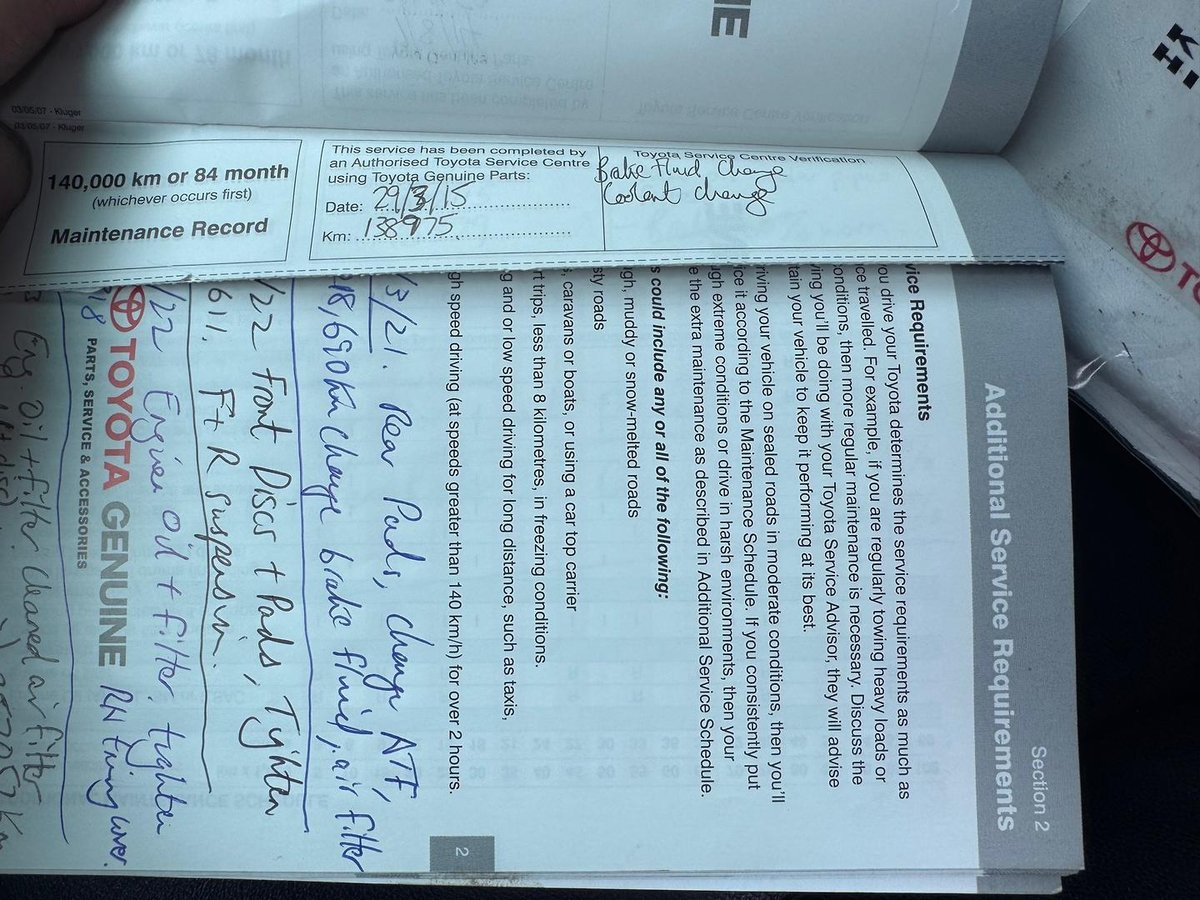 NE
03/05/07 - Kluger
03/05/07 - Kluger
140,000 km or 84 month
(whichever occurs first)
Maintenance Record
This service has been completed by
an Authorised Toyota Service Centre
using Toyota Genuine Parts:
Date: 29/3/15
Km: 138975
Toyota Service Centre Verification
Brake Fluid Change
Coolant change
Section 2
Additional Service Requirements
vice Requirements
ou drive your Toyota determines the service requirements as much as
ce travelled. For example, if you are regularly towing heavy loads or
onditions, then more regular maintenance is necessary. Discuss the
ving you'll be doing with your Toyota Service Advisor, they will advise
tain your vehicle to keep it performing at its best.
riving your vehicle on sealed roads in moderate conditions, then you'll
ice it according to the Maintenance Schedule. If you consistently put
ugh extreme conditions or drive in harsh environments, then your
e the extra maintenance as described in Additional Service Schedule.
s could include any or all of the following:
gh, muddy or snow-melted roads
sty roads
, caravans or boats, or using a car top carrier
rt trips, less than 8 kilometres, in freezing conditions.
g and or low speed driving for long distance, such as taxis,
gh speed driving (at speeds greater than 140 km/h) for over 2 hours.
2
/3/21. Rear Pads, change ATF,
18,690km change brake fluid, air filter
/22 Front Discs + Pads, Tighten
611. Ft R suspension.
/22 Engine oil + filter, tighten
318
TOYOTA GENUINE
PARTS, SERVICE & ACCESSORIES
RH timing cover.
3 Eng. oil + filter. Cleaned air filter
K
HI
TO